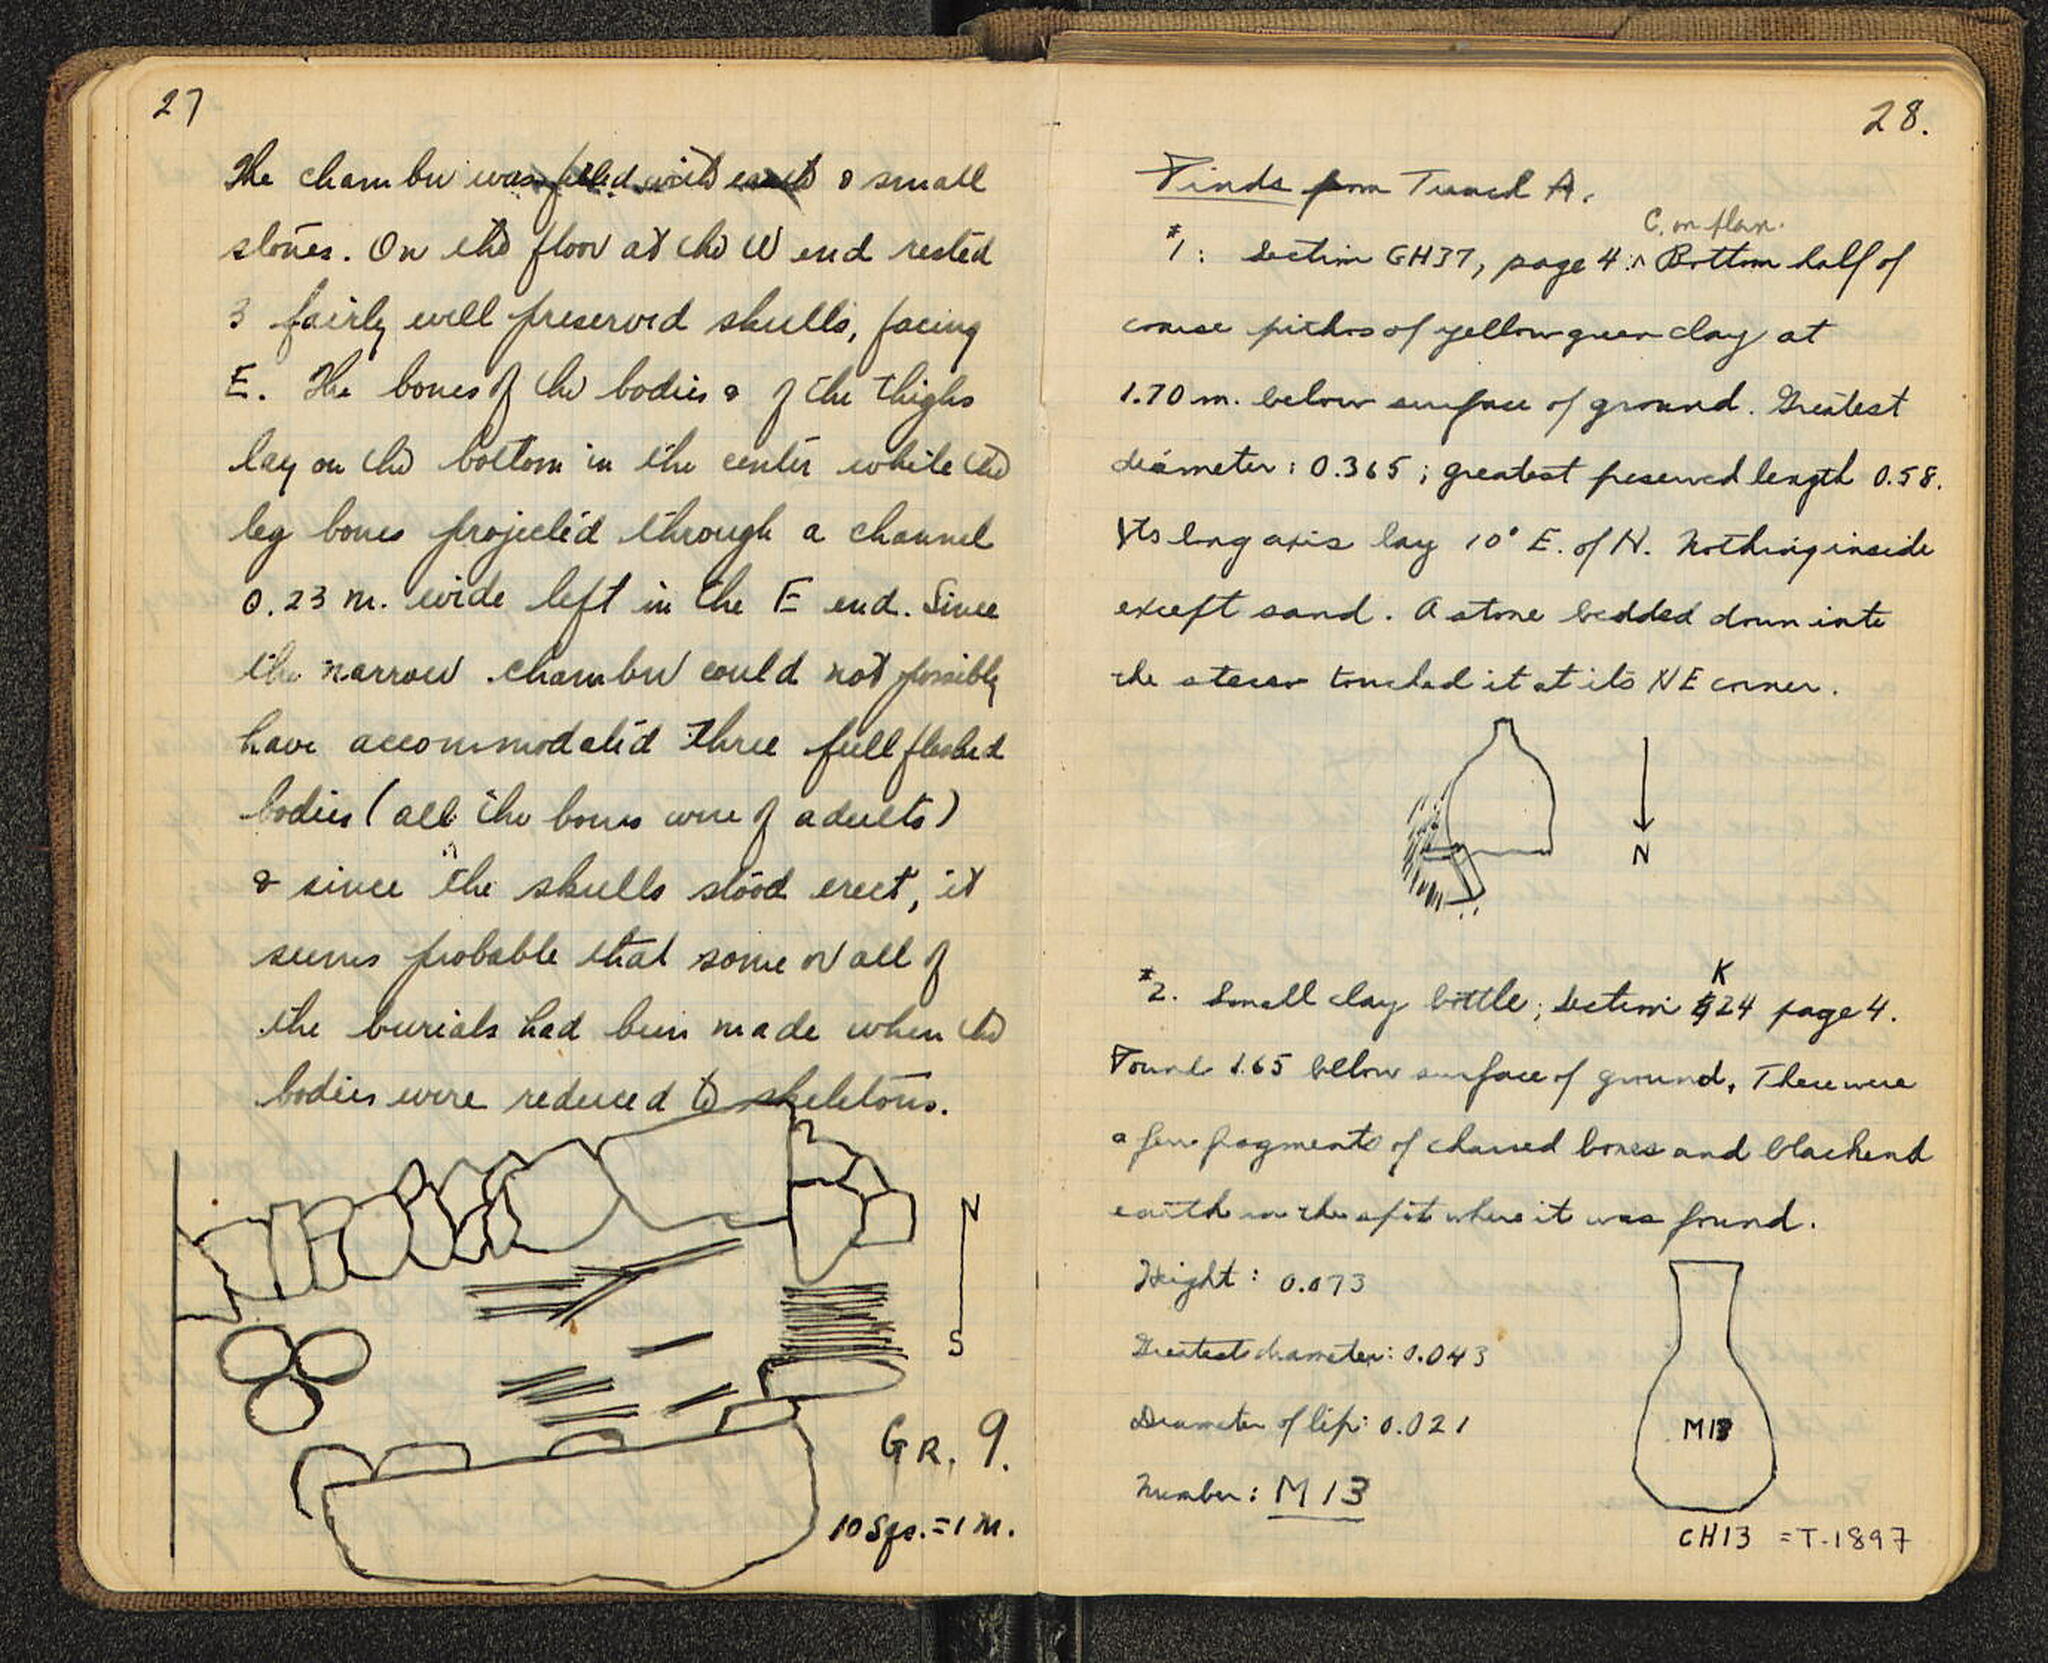 27
The chamber was filled with earth & small
stones. On the floor at the W end rested
3 fairly well preserved skulls, facing
E. The bones of the bodies & of the thighs
lay on the bottom in the center while the
leg bones projected through a channel
0.23 m. wide left in the E end. Since
the narrow chamber could not possibly
have accommodated three full fleshed
bodies (all the bones were of adults)
& since the skulls stood erect, it
seems probable that some or all of
the burials had been made when the
bodies were reduced to skeletons.
N
S
GR. 9.
10 Sqs. = 1 M.
28.
Finds from Trench A.
C. on plan.
#1: Section GH37, page 4: ^ Bottom half of
coarse pithos of yellow green clay at
1.70 m. below surface of ground. Greatest
diameter: 0.365; greatest preserved length 0.58.
Its long axis lay 10° E. of N. Nothing inside
except sand. A stone bedded down into
the stereo touched it at its NE corner.
N
K
#2. Small clay bottle; Section 24 page 4.
Found 1.65 below surface of ground. There were
a few fragments of charred bones and blackend
earth in the spot where it was found.
Height: 0.073
Greatest diameter: 0.043
Diameter of lip: 0.021
Number: M 13
M13
CH13 = T-1897